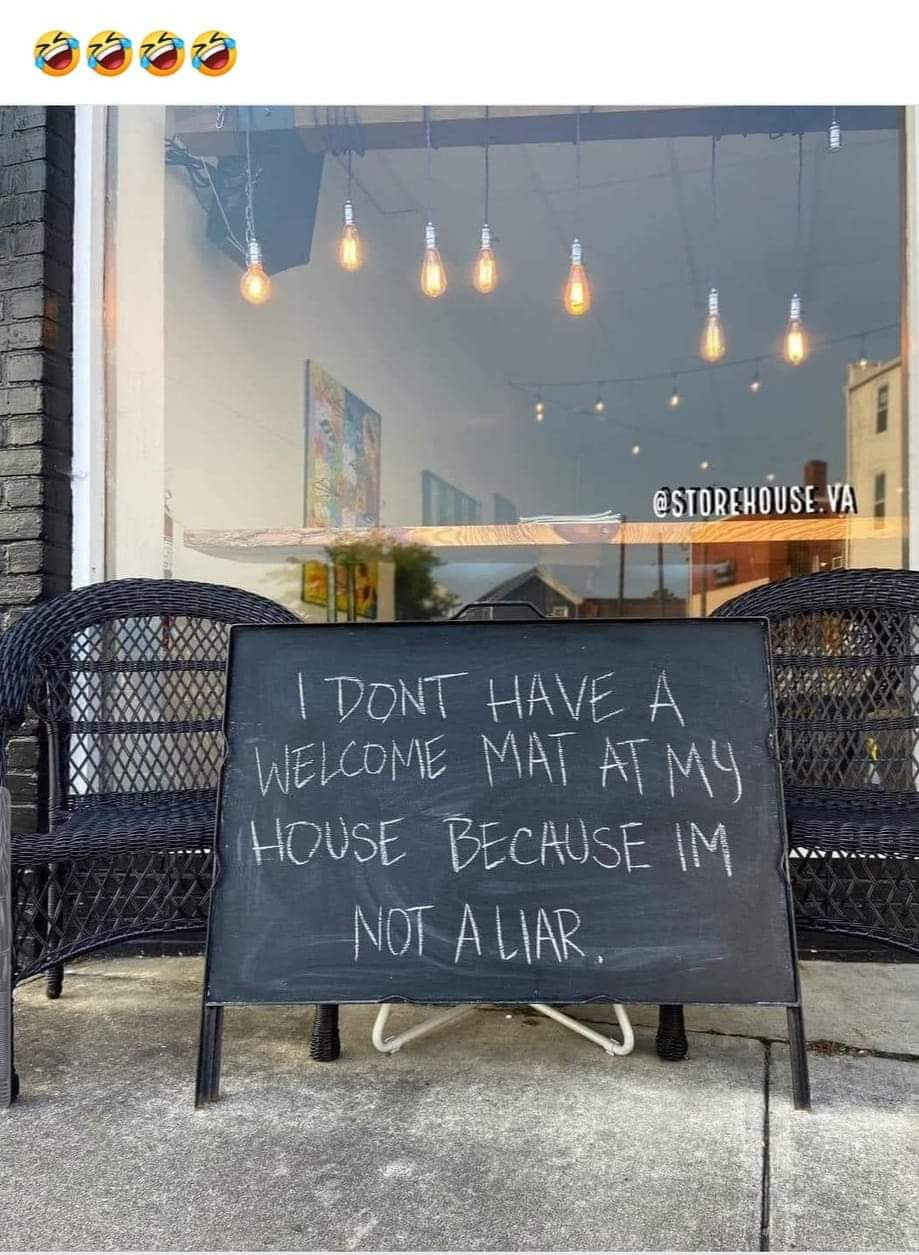 🤣🤣🤣🤣
@STOREHOUSE.VA
I DONT HAVE A
WELCOME MAT AT MY
HOUSE BECAUSE IM
NOT A LIAR.